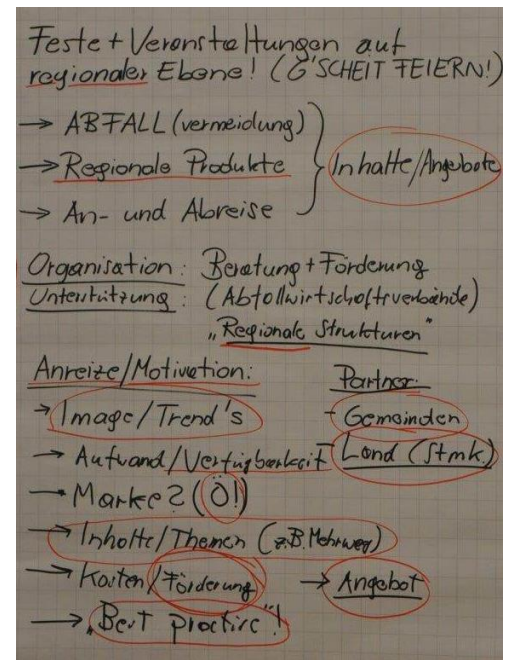 Feste + Veranstaltungen auf
regionaler Ebene! (G'SCHEIT FEIERN!)
→ ABFALL (vermeidung)
→ Regionale Produkte
→ An- und Abreise
Inhalte/Angebote
Organisation: Beratung + Förderung
Unterstützung: (Abfallwirtschaftsverbände)
„Regionale Strukturen"
Anreize/Motivation:
→ Image/Trend's
→ Aufwand/Verfügbarkeit
→ Marke? (Ö!)
→ Inhalte/Themen (z.B. Mehrweg)
→ Kosten/Förderung → Angebot
→ „Best practice"!
Partner:
- Gemeinden
- Land (Stmk)